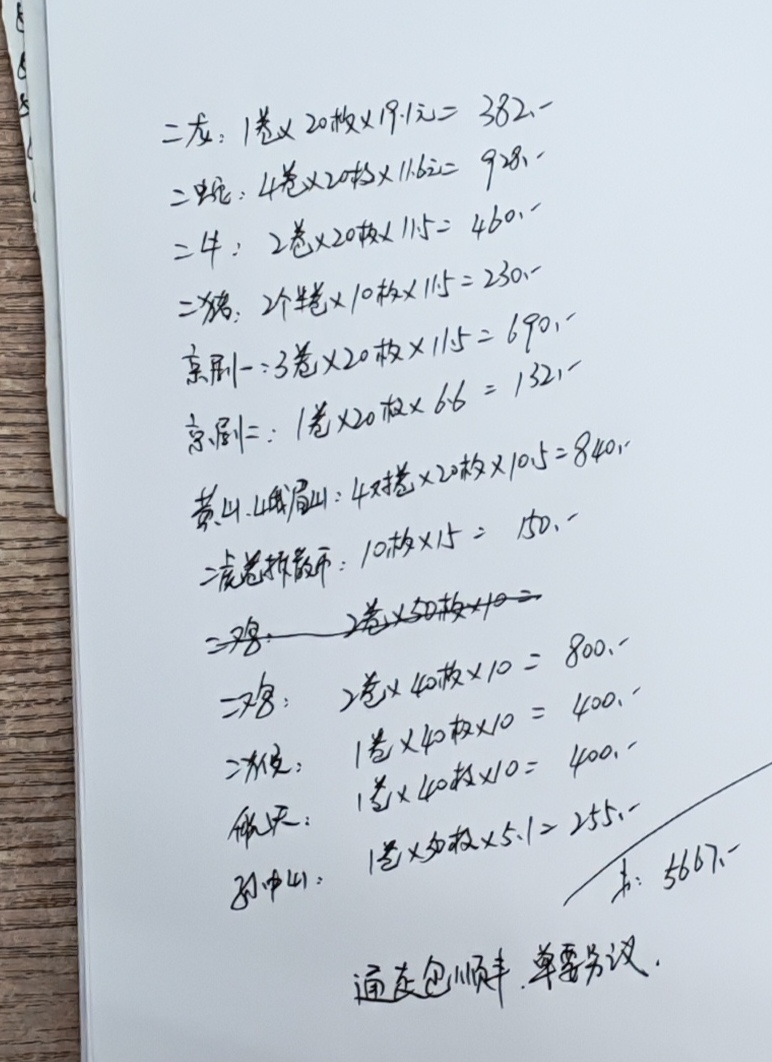 二龙：1卷×20枚×19.1元=382.-
二蛇：4卷×20枚×11.6元=928.-
二牛：2卷×20枚×11.5=460.-
二猪：2个半卷×10枚×11.5=230.-
京剧一：3卷×20枚×11.5=690.-
京剧二：1卷×20枚×6.6=132.-
黄山.峨眉山：4对卷×20枚×10.5=840.-
二虎卷拆散币：10枚×15=150.-
二鸡：2卷×50枚×10=
二鸡：2卷×40枚×10=800.-
二猴：1卷×40枚×10=400.-
航天：1卷×40枚×10=400.-
孙中山：1卷×50枚×5.1=255.-
共：5667.-
通走包顺丰.单要另议.